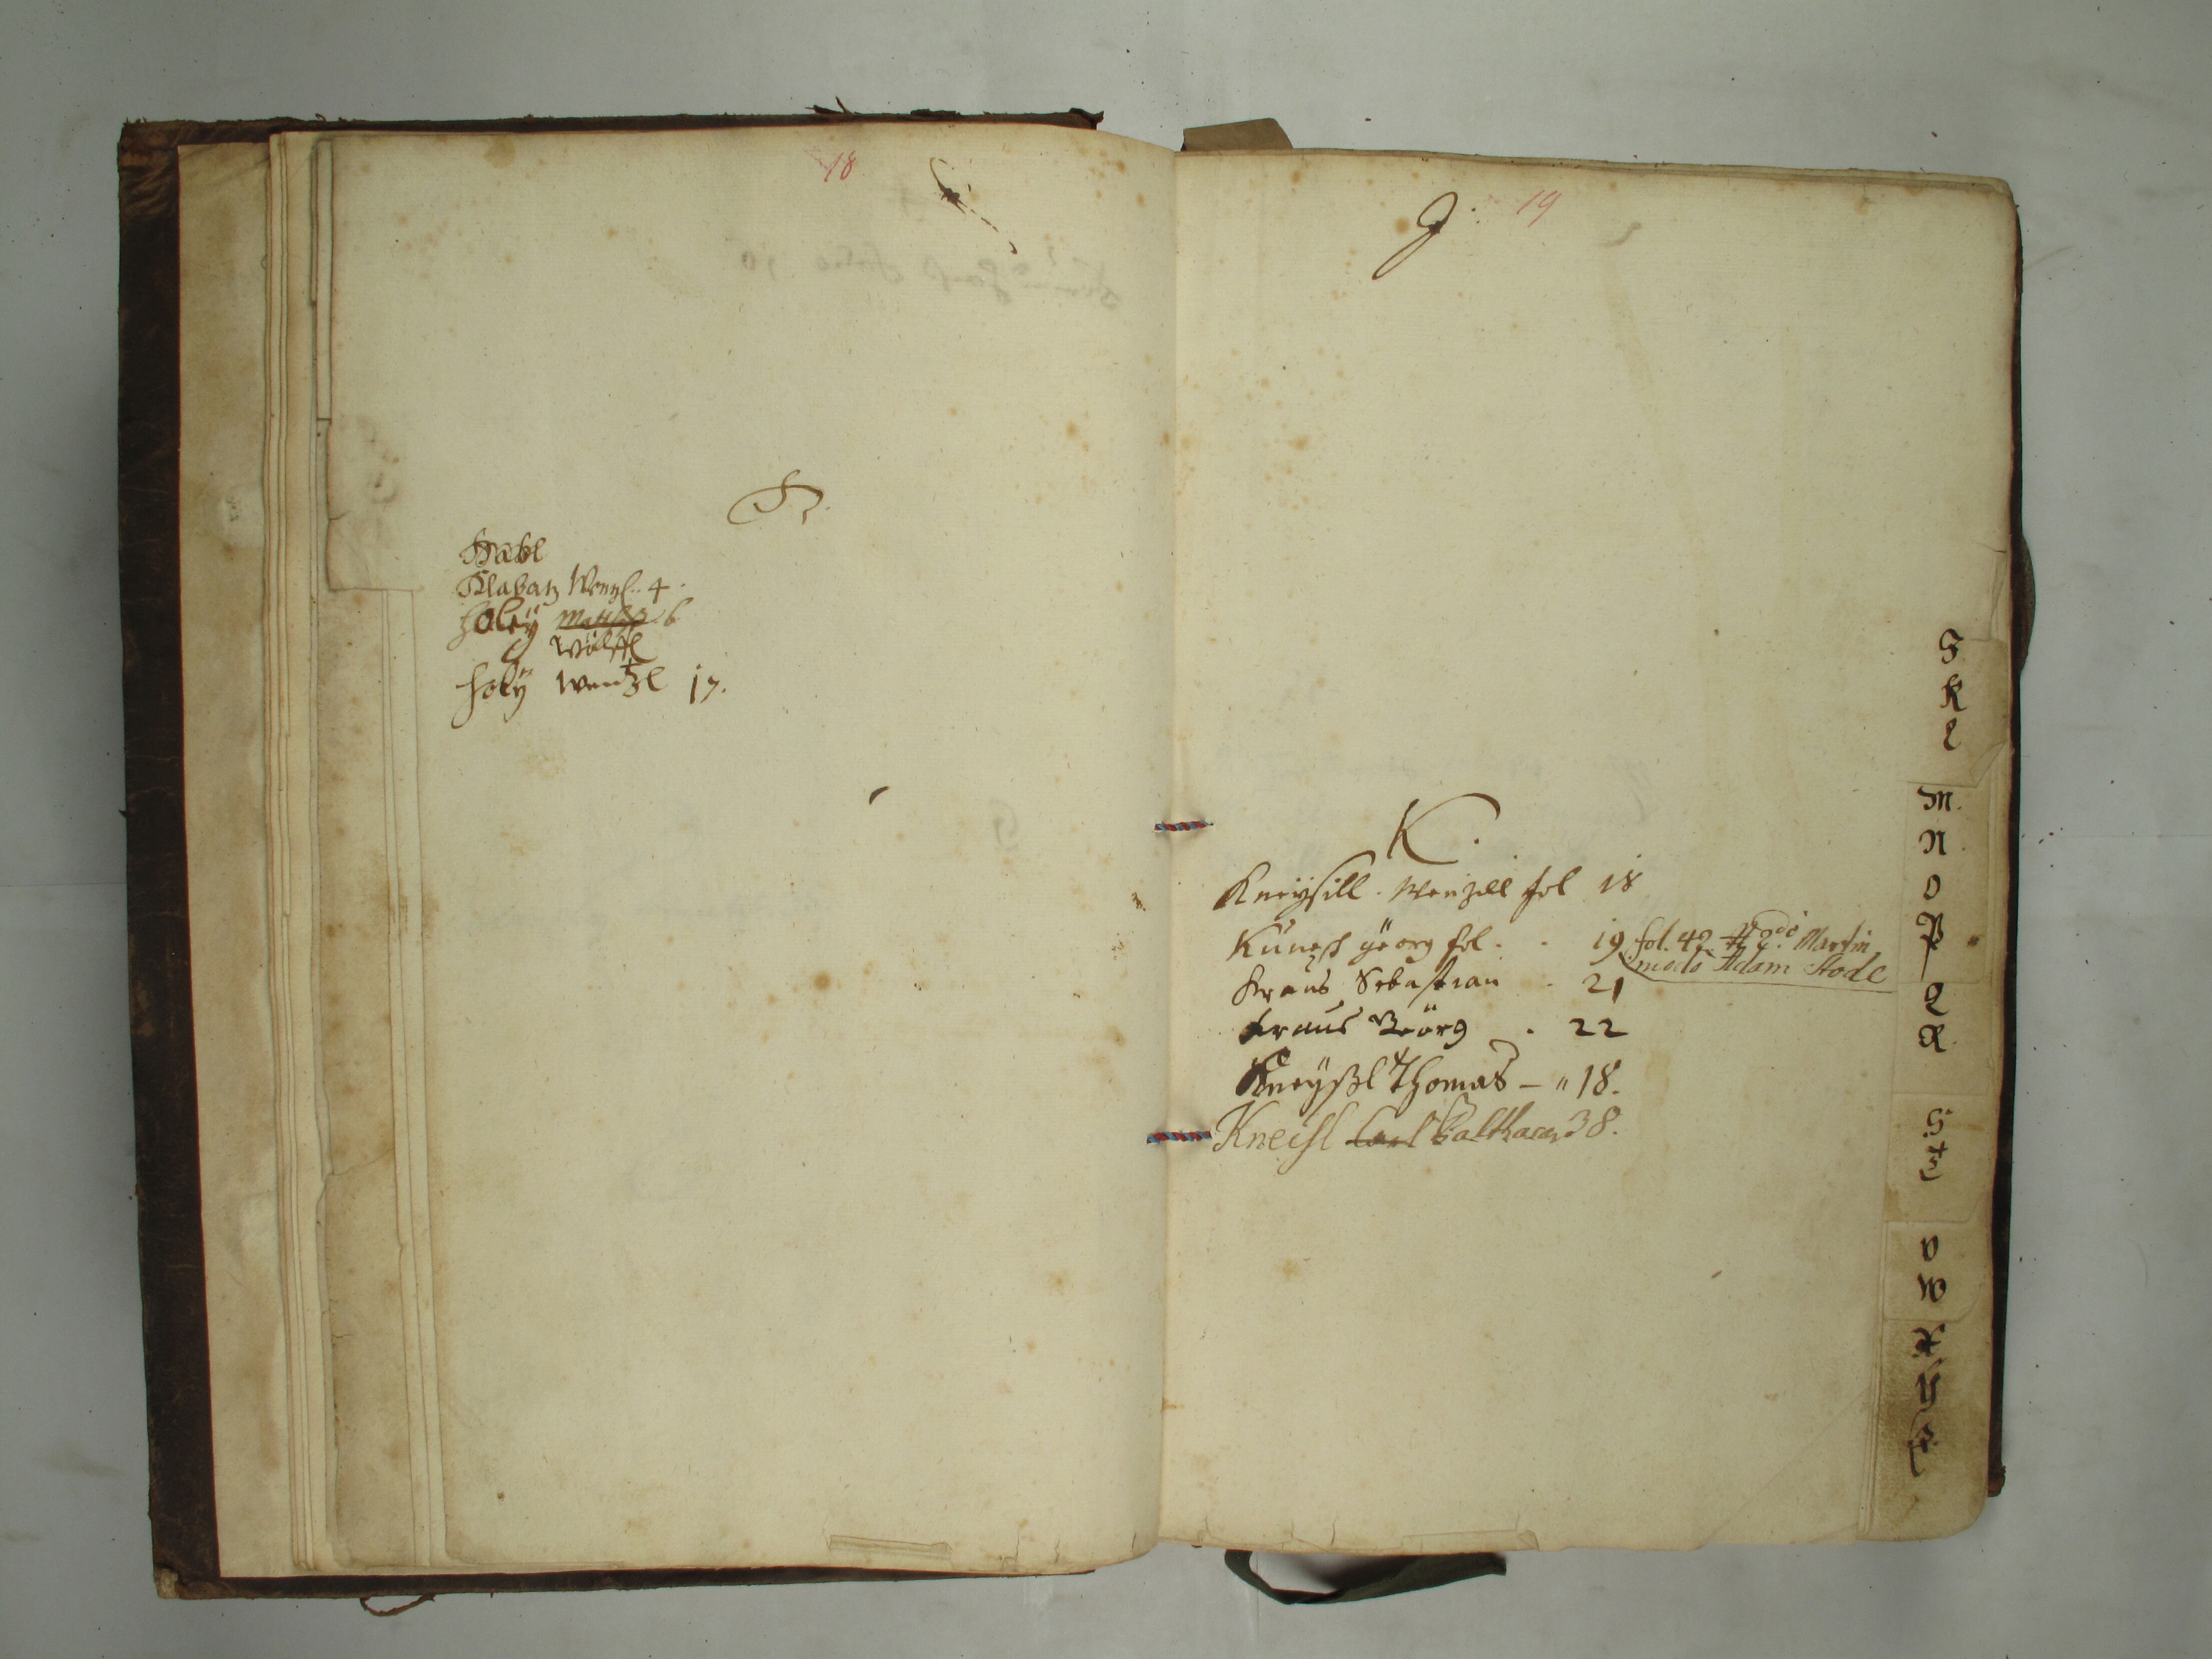 18
H.
Habl
Hlabatz Wenzl. 4.
Holey Mathes 6
Wölffl
Holÿ Wentzl 17.
J. 19
K.
Kneÿsill. Wenzell fol 18
Künesch Georg fol. . 19 fol. 42 modo Martin
modo Adam Hodl
Kraus Sebastian . 21
Kraus Geörg . 22
Kneÿßl Thomas — " 18.
Kneisl Carl Balthasar 38.
J
K
L
M.
N.
O
P
Q
R
S
T
V
W
X
Y
Z